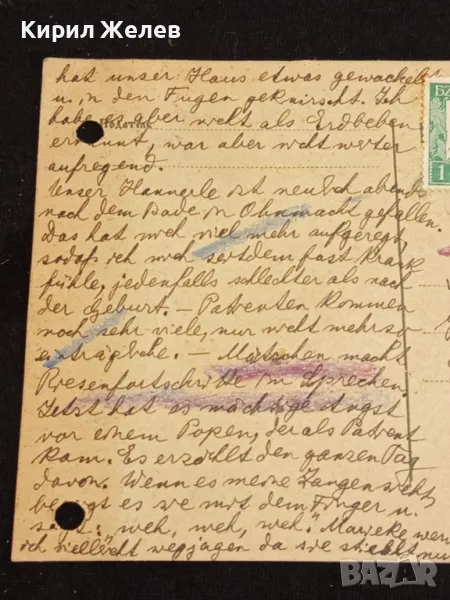 Кирил Желев
hat unser Haus etwas gewackelt
u. in den Fugen geknirscht. Ich
habe es aber nicht als Erdbeben
erkannt, war aber nicht weiter
aufregend.
Unser Hannerle ist neulich abends
nach dem Bade in Ohnmacht gefallen.
Das hat mich viel mehr aufgeregt,
sodaß ich mich seitdem fast krank
fühle, jedenfalls schlechter als nach
der Geburt. – Patienten kommen
noch sehr viele, nur nicht mehr so
einträgliche. – Mätschen macht
Riesenfortschritte im Sprechen.
Jetzt hat es mächtige Angst
vor einem Popen, der als Patient
kam. Es erzählt den ganzen Tag
davon. Wenn es meine Zangen sieht
es sie mit dem Finger u.
sagt: weh, weh, weh." Marieke werde
ich vielleicht wegjagen da sie stiehlt nur
БЪ
1
bazar.bg